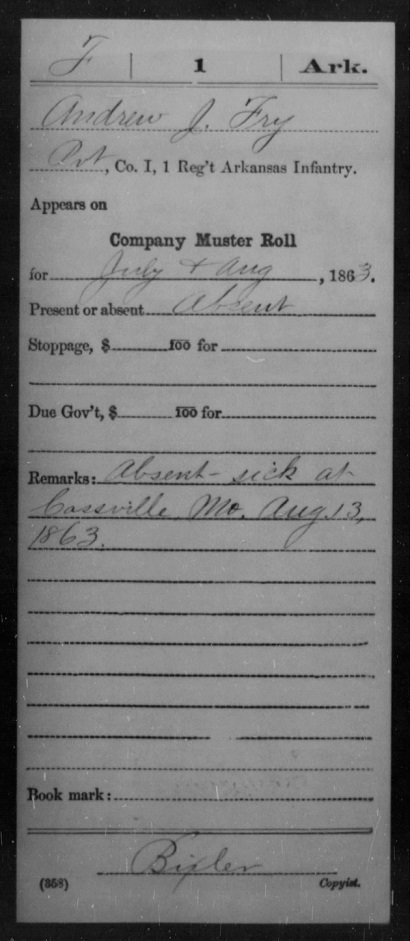 F | 1 | Ark.
Andrew J. Fry
Pvt, Co. I, 1 Reg't Arkansas Infantry.
Appears on
Company Muster Roll
for July & Aug, 1863.
Present or absent Absent
Stoppage, $ 100 for
Due Gov't, $ 100 for
Remarks: Absent - sick at
Cassville, Mo. Aug. 13,
1863.
Book mark:
Bixler
(358) Copyist.